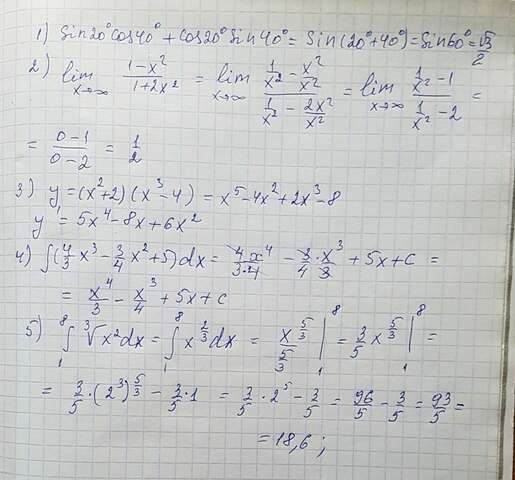 1) Sin20°cos40° + cos20° sin 40° = Sin(20°+40°) = Sin60° = √3/2
2) lim x→∞ (1-x²)/(1+2x²) = lim x→∞ (1/x² - x²/x²)/(1/x² - 2x²/x²) = lim x→∞ (1/x² - 1)/(1/x² - 2) =
= (0-1)/(0-2) = 1/2
3) y = (x²+2)(x³-4) = x⁵-4x²+2x³-8
y' = 5x⁴-8x+6x²
4) ∫(4/3 x³ - 3/4 x² + 5)dx = 4x⁴/(3·4) - 3/4 · x³/3 + 5x + c =
= x⁴/3 - x³/4 + 5x + c
5) ∫₁⁸ ∛x² dx = ∫₁⁸ x^(2/3) dx = x^(5/3)/(5/3) |₁⁸ = 3/5 x^(5/3) |₁⁸ =
= 3/5 · (2³)^(5/3) - 3/5 · 1 = 3/5 · 2⁵ - 3/5 = 96/5 - 3/5 = 93/5 =
= 18,6 ;